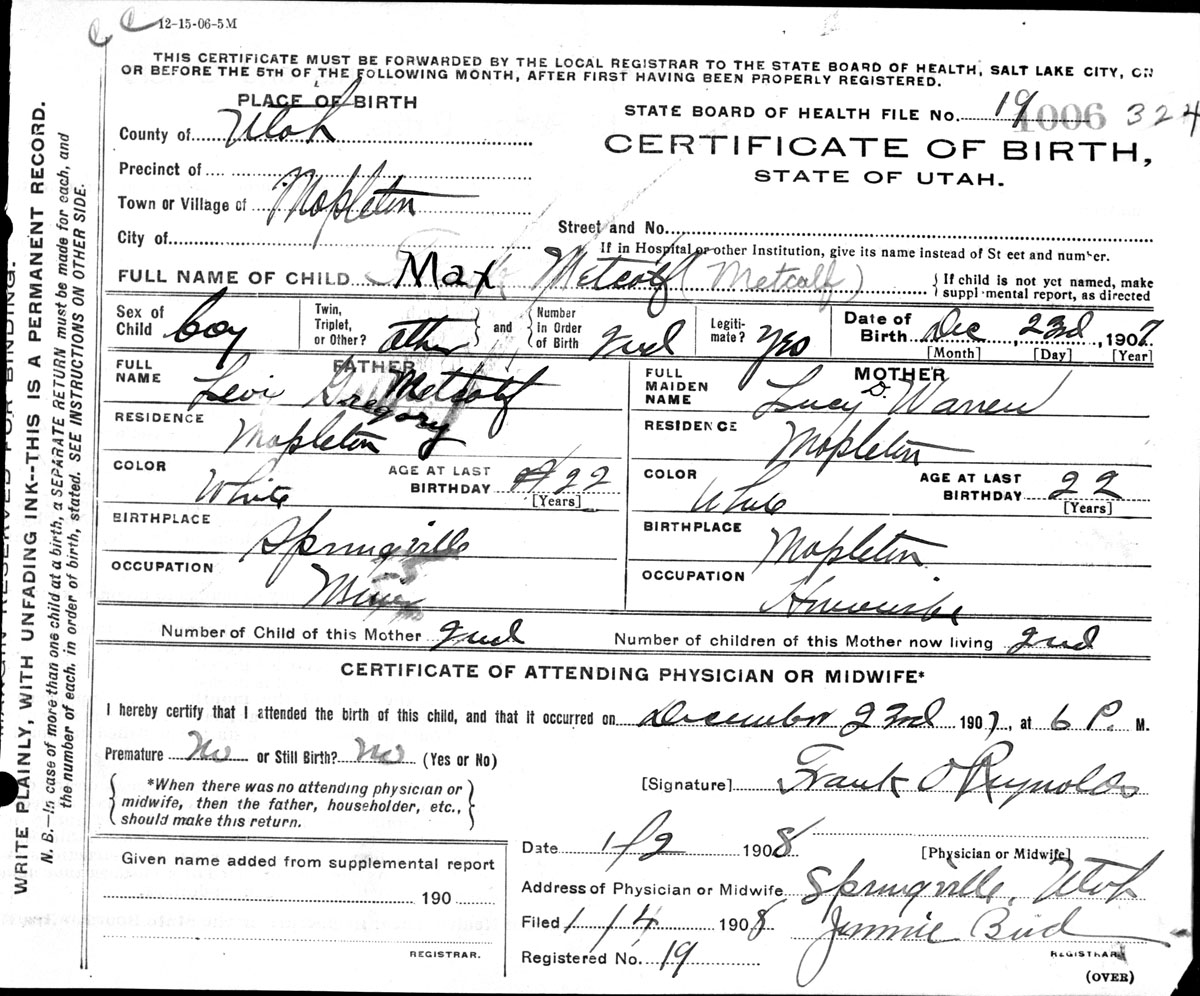 12-15-06-5M
THIS CERTIFICATE MUST BE FORWARDED BY THE LOCAL REGISTRAR TO THE STATE BOARD OF HEALTH, SALT LAKE CITY, ON
OR BEFORE THE 5TH OF THE FOLLOWING MONTH, AFTER FIRST HAVING BEEN PROPERLY REGISTERED.
PLACE OF BIRTH
STATE BOARD OF HEALTH FILE No. 19 1006 324
County of Utah
CERTIFICATE OF BIRTH,
STATE OF UTAH.
Precinct of
Town or Village of Mapleton
Street and No.
City of
If in Hospital or other Institution, give its name instead of St eet and number.
FULL NAME OF CHILD Max Metcalf (Metcalf) { If child is not yet named, make
suppl mental report, as directed
Sex of Child boy Twin, Triplet, or Other? other } and { Number in Order of Birth 2nd Legiti-mate? Yes Date of Birth Dec, 23d, 1907
[Month] [Day] [Year]
FATHER
FULL NAME Levi Gregory Metcalf
RESIDENCE Mapleton
COLOR White AGE AT LAST BIRTHDAY 22
[Years]
BIRTHPLACE Springville
OCCUPATION
MOTHER
FULL MAIDEN NAME Lucy D. Warren
RESIDENCE Mapleton
COLOR White AGE AT LAST BIRTHDAY 22
[Years]
BIRTHPLACE Mapleton
OCCUPATION Housewife
Number of Child of this Mother 2nd Number of children of this Mother now living 2nd
CERTIFICATE OF ATTENDING PHYSICIAN OR MIDWIFE*
I hereby certify that I attended the birth of this child, and that it occurred on December 23rd 1907, at 6 P. M.
Premature No or Still Birth? No (Yes or No)
{ *When there was no attending physician or
midwife, then the father, householder, etc.,
should make this return. }
[Signature] Frank O Reynolds
Date 1/2 1908
[Physician or Midwife]
Address of Physician or Midwife Springville, Utah
Filed 1 14 1908 Jennie Bird
REGISTRAR
Registered No. 19
(OVER)
Given name added from supplemental report
190
REGISTRAR.
WRITE PLAINLY, WITH UNFADING INK--THIS IS A PERMANENT RECORD.
N. B.—In case of more than one child at a birth, a SEPARATE RETURN must be made for each, and
the number of each, in order of birth, stated. SEE INSTRUCTIONS ON OTHER SIDE.